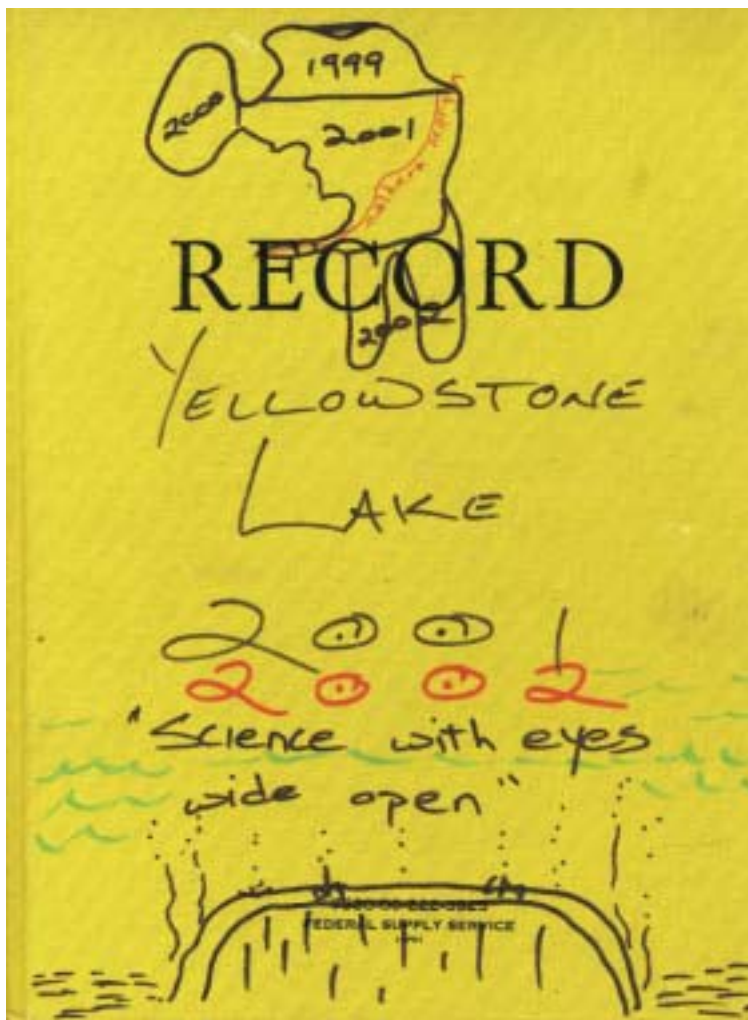 1999
2000
2001
caldera margin
RECORD
2002
YELLOWSTONE
LAKE
2001
2002
"Science with eyes
wide open"
FEDERAL SUPPLY SERVICE